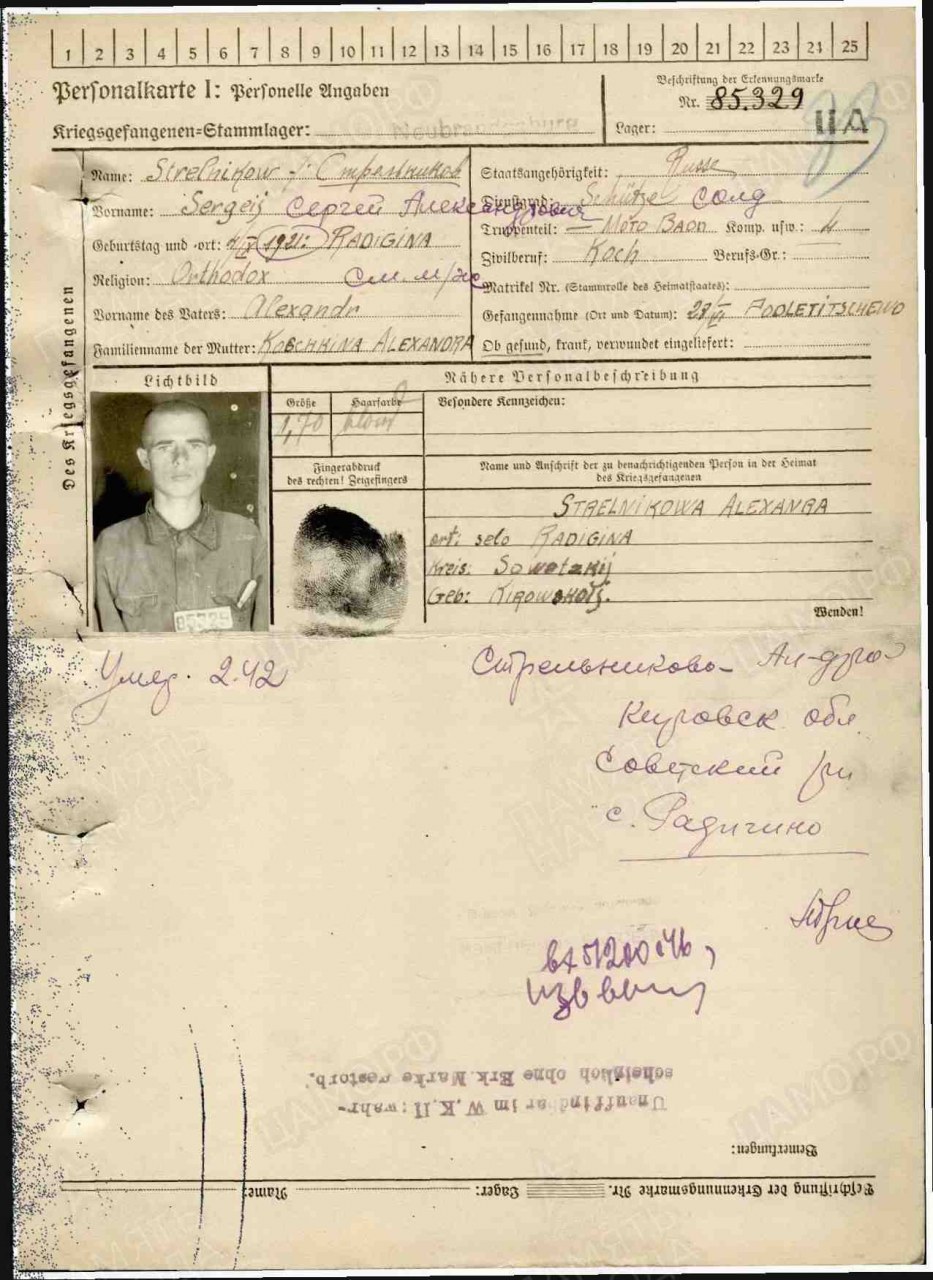 1 2 3 4 5 6 7 8 9 10 11 12 13 14 15 16 17 18 19 20 21 22 23 24 25
Personalkarte I: Personelle Angaben
Beschriftung der Erkennungsmarke
Nr. 85.329
Kriegsgefangenen=Stammlager:
Lager: II A
Des Kriegsgefangenen
Name: Strelnikow Стрельников
Vorname: Sergeij Сергей Александрович
Geburtstag und -ort: 1921. RADIGINA
Religion: Orthodox
Vorname des Vaters: Alexandr
Familienname der Mutter: KOSCHKINA ALEXANDRA
Staatsangehörigkeit: Russe
Dienstgrad: Schütze солд
Truppenteil: Moto Baon Komp. usw.: 4
Zivilberuf: Koch Berufs-Gr.:
Matrikel Nr. (Stammrolle des Heimatstaates):
Gefangennahme (Ort und Datum):
Ob gesund, krank, verwundet eingeliefert:
Lichtbild
85329
Nähere Personalbeschreibung
Größe
1,70
Haarfarbe
blond
Besondere Kennzeichen:
Fingerabdruck
des rechten! Zeigefingers
Name und Anschrift der zu benachrichtigenden Person in der Heimat
des Kriegsgefangenen
STRELNIKOWA ALEXANRA
ort: selo RADIGINA
Kreis: Sowetzkij
Geb:
Wenden!
Умер. 2.42
Стрельникова
Кировск обл
Советский
с. Радигино
Unauffindbar im W.K.II: wahr-
scheinlich ohne Erk. Marke gestorb.
Bemerkungen:
Beschriftung der Erkennungsmarke Nr. Lager: Name: